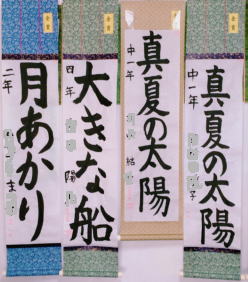 真夏の太陽
中一年
子
真夏の太陽
中一年
結
大きな船
四年
陽
月あかり
二年
ま